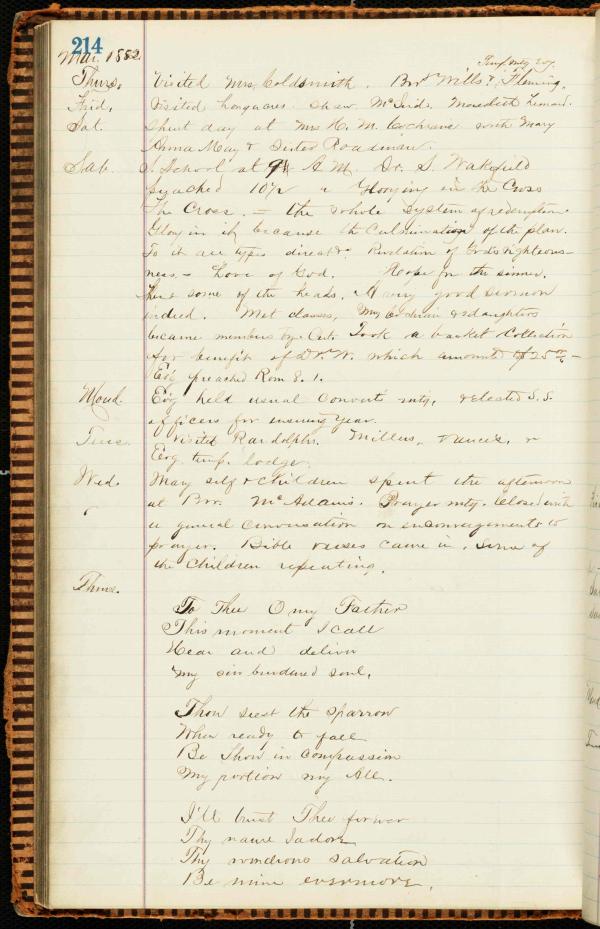 214
Mar. 1882
Temp. mtg. Evg.
Thurs. Visited Mrs. Goldsmith. Bro's Wills & Fleming.
Frid. Visited Shaw. Meredith
Sat. Spent day at Mrs H. M. Cochrans with Mary
Anna May & Sister
Sab. S. School at 9½ A.M. Dr. S. Wakefield
preached 10½ Glorying in the Cross
The Cross. = the whole system of redemption.
Glory in it because the Culmination of the plan.
To it all types direct &c. Revelation of God's righteous-
ness. - Love of God. Hope for the sinner.
These some of the heads. A very good sermon
indeed. Met classes, Mrs Cochran & daughters
became members by Cert. Took a basket Collection
for benefit of Dr. W. which amount of 25 00/-
Evg preached Rom 8. 1.
Mond. Evg held usual Converts mtg. & elected S.S.
officers for ensuing year.
Tues. Visited Randolphs. Millers, Vances, &
Evg. temp. lodge.
Wed. May self & Children spent the afternoon
at Bro. McAdams. Prayer mtg. Closed with
a general conversation on encouragements to
prayer. Bible verses came in. Some of
the Children repeating.
Thurs.
To Thee O my Father
This moment I call
Hear and deliver
My sin burdened soul.
Thou seest the sparrow
When ready to fall
Be Thou in compassion
My portion my All.
I'll trust Thee forever
Thy name I adore
Thy wondrous salvation
Be mine evermore.